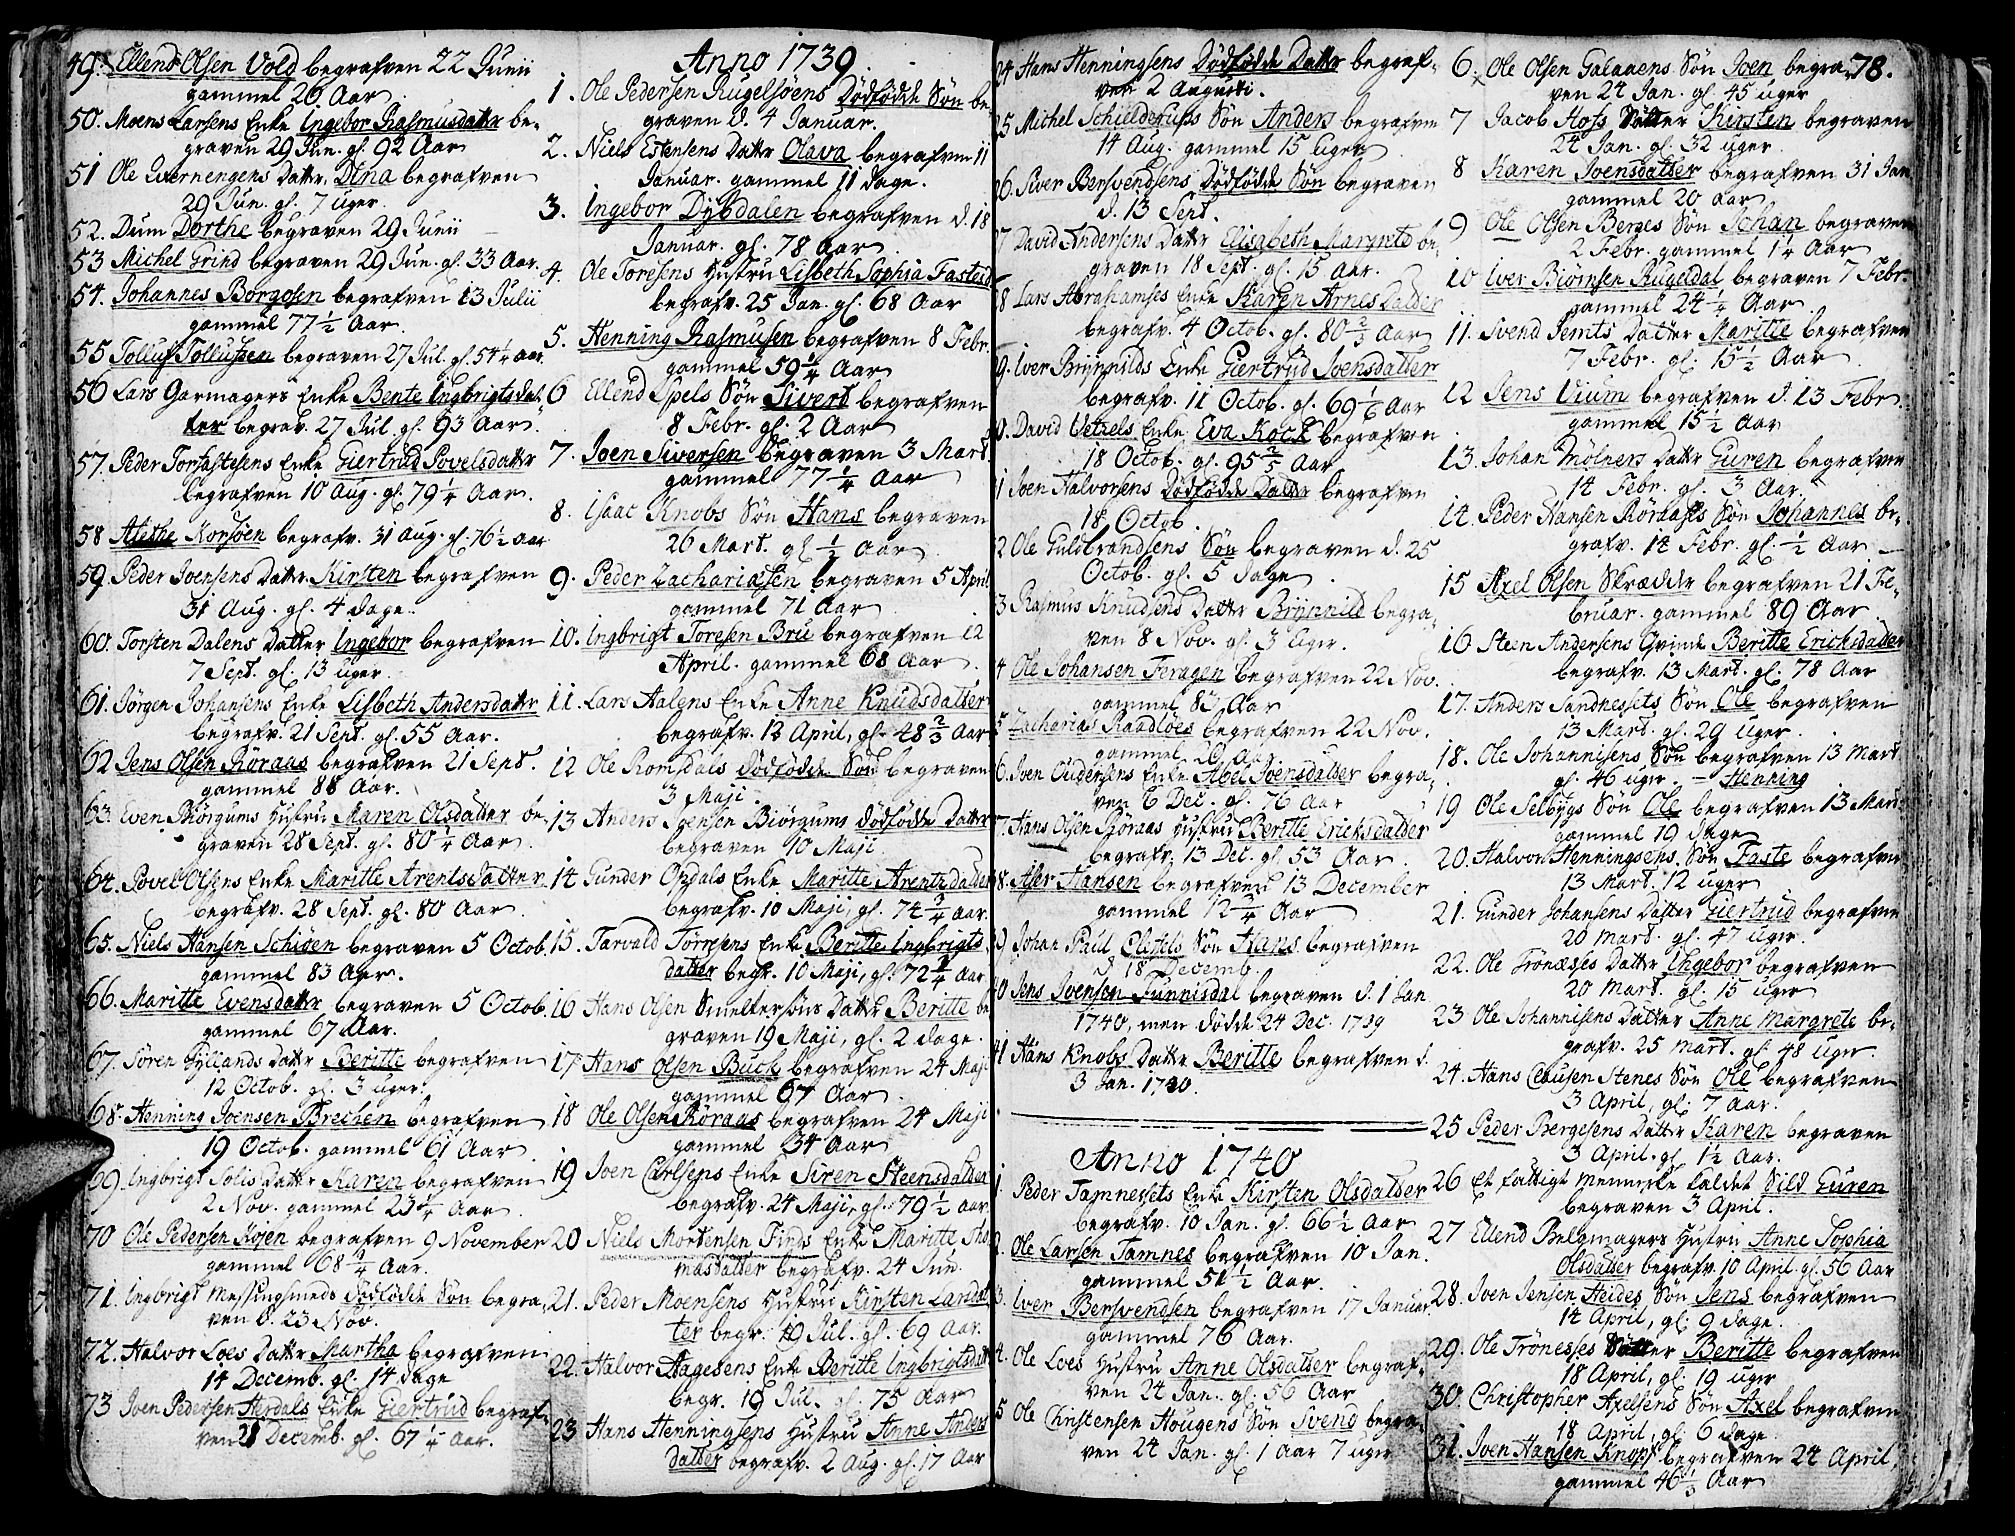 49. Ellend Olsen Vold begrafven 22 Junii
gammel 26 Aar
50. Moens Larsens Enke Ingebor Rasmusdattr be-
graven 29 Jun. gl. 92 Aar
51 Ole Dattr. Dina begrafven
29 Jun. gl. 7 uger.
52. Dum Dorthe begraven 29 Junii
53 Michel Grind begraven 29 Jun. gl. 33 Aar.
54. Johannes Borgosen begrafven 13 Julii
gammel 77 1/2 Aar.
55 Tolluf Tollufsen begraven 27 Jul. gl. 54 1/4 aar.
56 Lars Garmagers Enke Bente Ingbrigtsdat-
ter begrav. 27 Jul gl. 93 Aar.
57. Peder Torfastesens Enke Giertrud Povelsdattr
begrafven 10 Aug. gl. 79 1/4 Aar.
58 Alethe Korsøen begrafv. 31 Aug. gl. 76 1/2 Aar
59. Peder Joensens Dattr. Kirsten begrafven
31 Aug. gl. 4 dage.
60. Torsten Dalens Datter Ingebor begrafven
7 Sept. gl. 13 uger
61. Jörgen Johansens Enke Lisbeth Andersdattr
begrafv. 21 Sept. gl. 55 Aar.
62 Jens Olsen Röraas begrafven 21 Sept.
gammel 88 Aar.
63. Even Skiörgums Hustru Maren Olsdatter be-
graven 28 Sept. gl. 80 1/4 Aar
64. Povel Olsens Enke Maritte Arentsdatter
begrafv. 28 Sept. gl. 80 Aar
65. Niels Hansen Schiöen begraven 5 Octob.
gammel 83 Aar.
66. Maritte Evensdattr begraven 5 Octob.
gammel 67 Aar.
67. Sören Gyllands Dattr Beritte begrafven
12 Octob. gl. 3 uger.
68. Henning Joensen Brechen begrafven
19 Octob. gammel 61 Aar
69 Ingbrigt Solis Datter Karen begrafven
2 Nov. gammel 23 1/4 Aar
70 Ole Pedersen Kojen begrafven 9 November
gammel 68 3/4 Aar.
71. Ingbrigt Messingsmeds dødfødde Søn begra-
ven d. 23 Nov.
72. Halvor Loes Dattr Martha begrafven
14 Decemb. gl. 14 dage
73 Joen Pedersen Herdals Enke Giertrud begraf-
ven 28 Decemb. gl. 67 1/4 Aar.
Anno 1739.
1. Ole Pedersen Rugelsöens Dödfödde Sön be-
graven d. 4 Januar.
2. Niels Estensens Dattr Olava begrafven 11
Januar. gammel 11 dage.
3. Ingebor Dybdalen begrafven d. 18
Januar. gl. 78 Aar
4. Ole Toresens Hustru Lisbeth Sophia Fastad
begrafv. 25 Jan. gl. 68 Aar
5. Henning Rasmusen begrafven 8 Febr.
gammel 59 1/4 Aar
6 Ellend Spels Sön Sivert begrafven
8 Febr. gl. 2 Aar
7. Joen Siversen begraven 3 Mart.
gammel 77 1/4 Aar
8. Isaac Knobs Sön Hans begraven
26 Mart. gl. 1/2 Aar
9. Peder Zachariasen begraven 5 April
gammel 71 Aar
10. Ingbrigt Toresen Bru begrafven 12
April. gammel 68 Aar
11. Lars Aalens Enke Anne Knudsdatter
begrafv. 12 April, gl. 48 2/3 Aar
12 Ole Romsdals dödfödde Sön begraven
3 Maji.
13 Anders Joensen Biörgums dödfödde Dattr
begraven 10 Maji
14 Gunder Opdals Enke Maritte Arentsdatter
begrafv. 10 Maji, gl. 74 3/4 Aar.
15. Tarvald Törresens Enke Beritte Ingbrigts-
datter begr. 10 Maji, gl. 72 1/4 Aar
16 Hans Olsen Smeltersöns Dattr Beritte be
graven 19 Maji, gl. 2 dage.
17 Hans Olsen Buck begrafven 24 Maji
gammel 67 Aar
18 Ole Olsen Röraas begrafven 24 Maji
gammel 34 Aar
19 Joen Carlsens Enke Siren Steensdatter
begrafv. 24 Maji, gl. 79 1/2 aar
20 Niels Mortensen Finds Enke Maritte Tho
masdatter begrafv. 24 Jun.
21. Peder Moensens Hustru Kirsten Larsdat
ter begr. 19 Jul. gl. 69 Aar.
22. Halvor Aagesens Enke Beritte Ingbrigtsdatt
begr. 19 Jul. gl. 75 Aar
23. Hans Henningsens Hustru Anne Anders
datter begrafv. 2 Aug. gl. 17 Aar
24 Hans Henningsens Dödfödde Dattr begraf-
ven 2 Augusti.
25 Michel Schielderups Sön Anders begrafven
14 Aug. gammel 15 Uger
26. Siver Bersvendsens Dödfödde Sön begraven
d. 13 Sept.
7 David Andersens Dattr Elisabeth Margrete be-
graven 18 Sept. gl. 15 Aar.
8 Lars Abrahamses Enke Karen Arnesdatter
begrafv. 4 Octob. gl. 80 2/3 Aar
9. Iver Brynnilds Enke Giertrud Joensdatter
begrafv. 11 Octob. gl. 69 1/6 Aar
0. David Vetzels Enke Eva Kock begrafven
18 Octob. gl. 95 2/5 Aar
1 Joen Halvorsens Dödfödde Dattr begrafven
18 Octob.
2 Ole Guldbrandsens Sön begraven d. 25
Octob. gl. 5 dage
3 Rasmus Knudsens Datter Brynnild begra-
ven 8 Nov. gl. 3 Uger.
4 Ole Johansen Feragen begrafven 22 Nov.
gammel 82 Aar
5 Zacharias Raadlöes begrafven 22 Nov.
gammel 26 Aar
6. Joen Oudensens Enke Abel Joensdatter begra-
ven 6 Dec. gl. 76 Aar
7. Hans Olsen Röraas Hustru Beritte Ericksdatter
begrafv. 13 Dec. gl. 53 Aar.
8. Aser Hansen begrafven 13 December
gammel 12 3/4 Aar
9 Johan Paul Sön Hans begrafven
d. 18 Decemb.
0 Jens Ivenson Funnisdal begraven d. 1 Jan
1740, men dødde 24 Dec. 1739
41 Hans Knobs Dattr Beritte begrafven d.
3 Jan. 1740.
Anno 1740
1 Peder Tamnessets Enke Kirsten Olsdatter
begrafv. 10 Jan. gl. 66 1/2 Aar
2. Ole Larsen Tamnes begrafven 10 Jan.
gammel 51 1/2 Aar.
3. Iver Bersvendsen begrafven 17 Januar
gammel 76 Aar.
4. Ole Loes Hustru Anne Olsdatter begraf-
ven 24 Jan. gl. 56 Aar
5 Ole Christensen Hougens Sön Svend begra-
ven 24 Jan. gl. 1 Aar 7 uger
78.
6. Ole Olsen Galaaens Sön Joen begra
ven 24 Jan. gl. 45 uger
7 Jacob Hofs Datter Kirsten begraven
24 Jan. gl. 32 uger
8 Karen Joensdatter begrafven 31 Jan
gammel 20 Aar
9 Ole Olsen Berges Sön Johan begraven
2 Febr. gammel 1 1/4 Aar
10 Iver Biörnsen Rugeldal begraven 7 Febr.
gammel 24 1/4 Aar
11. Svend Jemts Datter Maritte begrafven
7 Febr. gl. 15 1/2 Aar
12 Jens Vium begrafven d. 13 Febr.
gammel 15 1/2 Aar
13. Johan Mölners Dattr Guren begrafven
14 Febr. gl. 3 Aar.
14. Peder Hansen Röraases Sön Johannes be-
grafv. 14 Febr. gl. 1/2 Aar
15 Axel Olsen Skrædder begrafven 21 Fe-
bruar. gammel 89 Aar
16 Steen Andersens Qvinde Beritte Ericksdatter
begrafv. 13 Mart. gl. 78 Aar
17. Anders Sandnessets Sön Ole begrafven
13 Mart. gl. 29 uger
18. Ole Johannisens Sön begrafven 13 Mart
gl. 46 uger. — Henning
19 Ole Selbygs Sön Ole begrafven 13 Mart
gammel 19 dage
20. Halvor Henningsens Sön Faste begrafven
13 Mart. 12 uger
21. Gunder Johansens Datter Giertrud begrafven
20 Mart. gl. 47 uger.
22. Ole Trönæsses Dattr Ingebor begrafven
20 Mart. gl. 15 uger
23 Ole Johannisens Datter Anne Margrete be-
grafv. 25 Mart. gl. 48 uger.
24. Hans Clausen Stenes Sön Ole begrafven
3 April, gl. 7 Aar.
25 Peder Bergesens Datter Karen begraven
3 April. gl 1 1/2 Aar.
26 Et fattigt Menneske kaldet Sild Guren
begraven 3 April.
27 Ellend Belgmagers Hustru Anne Sophia
Olsdatter begrafv. 10 April. gl. 56 Aar
28. Joen Jensen Heides Sön Jens begrafven
14 April, gl. 9 dage.
29. Ole Trönesses Datter Beritte begrafven
18 April, gl. 19 uger
30. Christopher Axelsens Sön Axel begrafven
18 April, gl. 6 dage.
31. Joen Hansen Knopf begrafven 24 April,
gammel 46 1/3 Aar